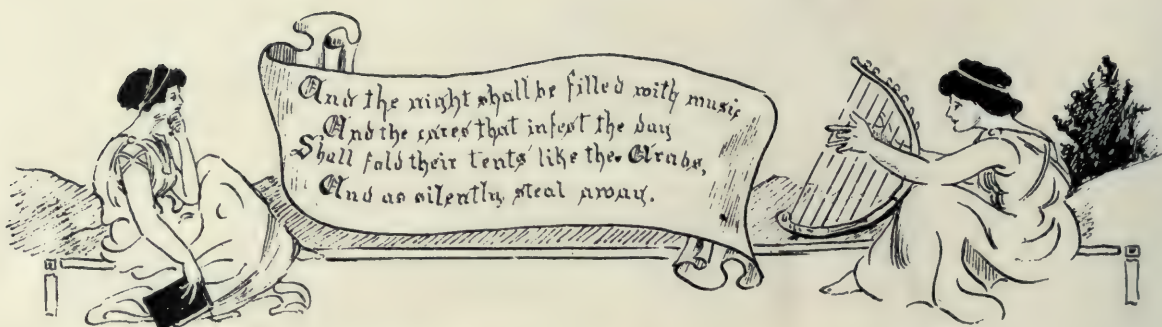 And the night shall be filled with music
And the cares that infest the day
Shall fold their tents like the Arabs,
And as silently steal away.